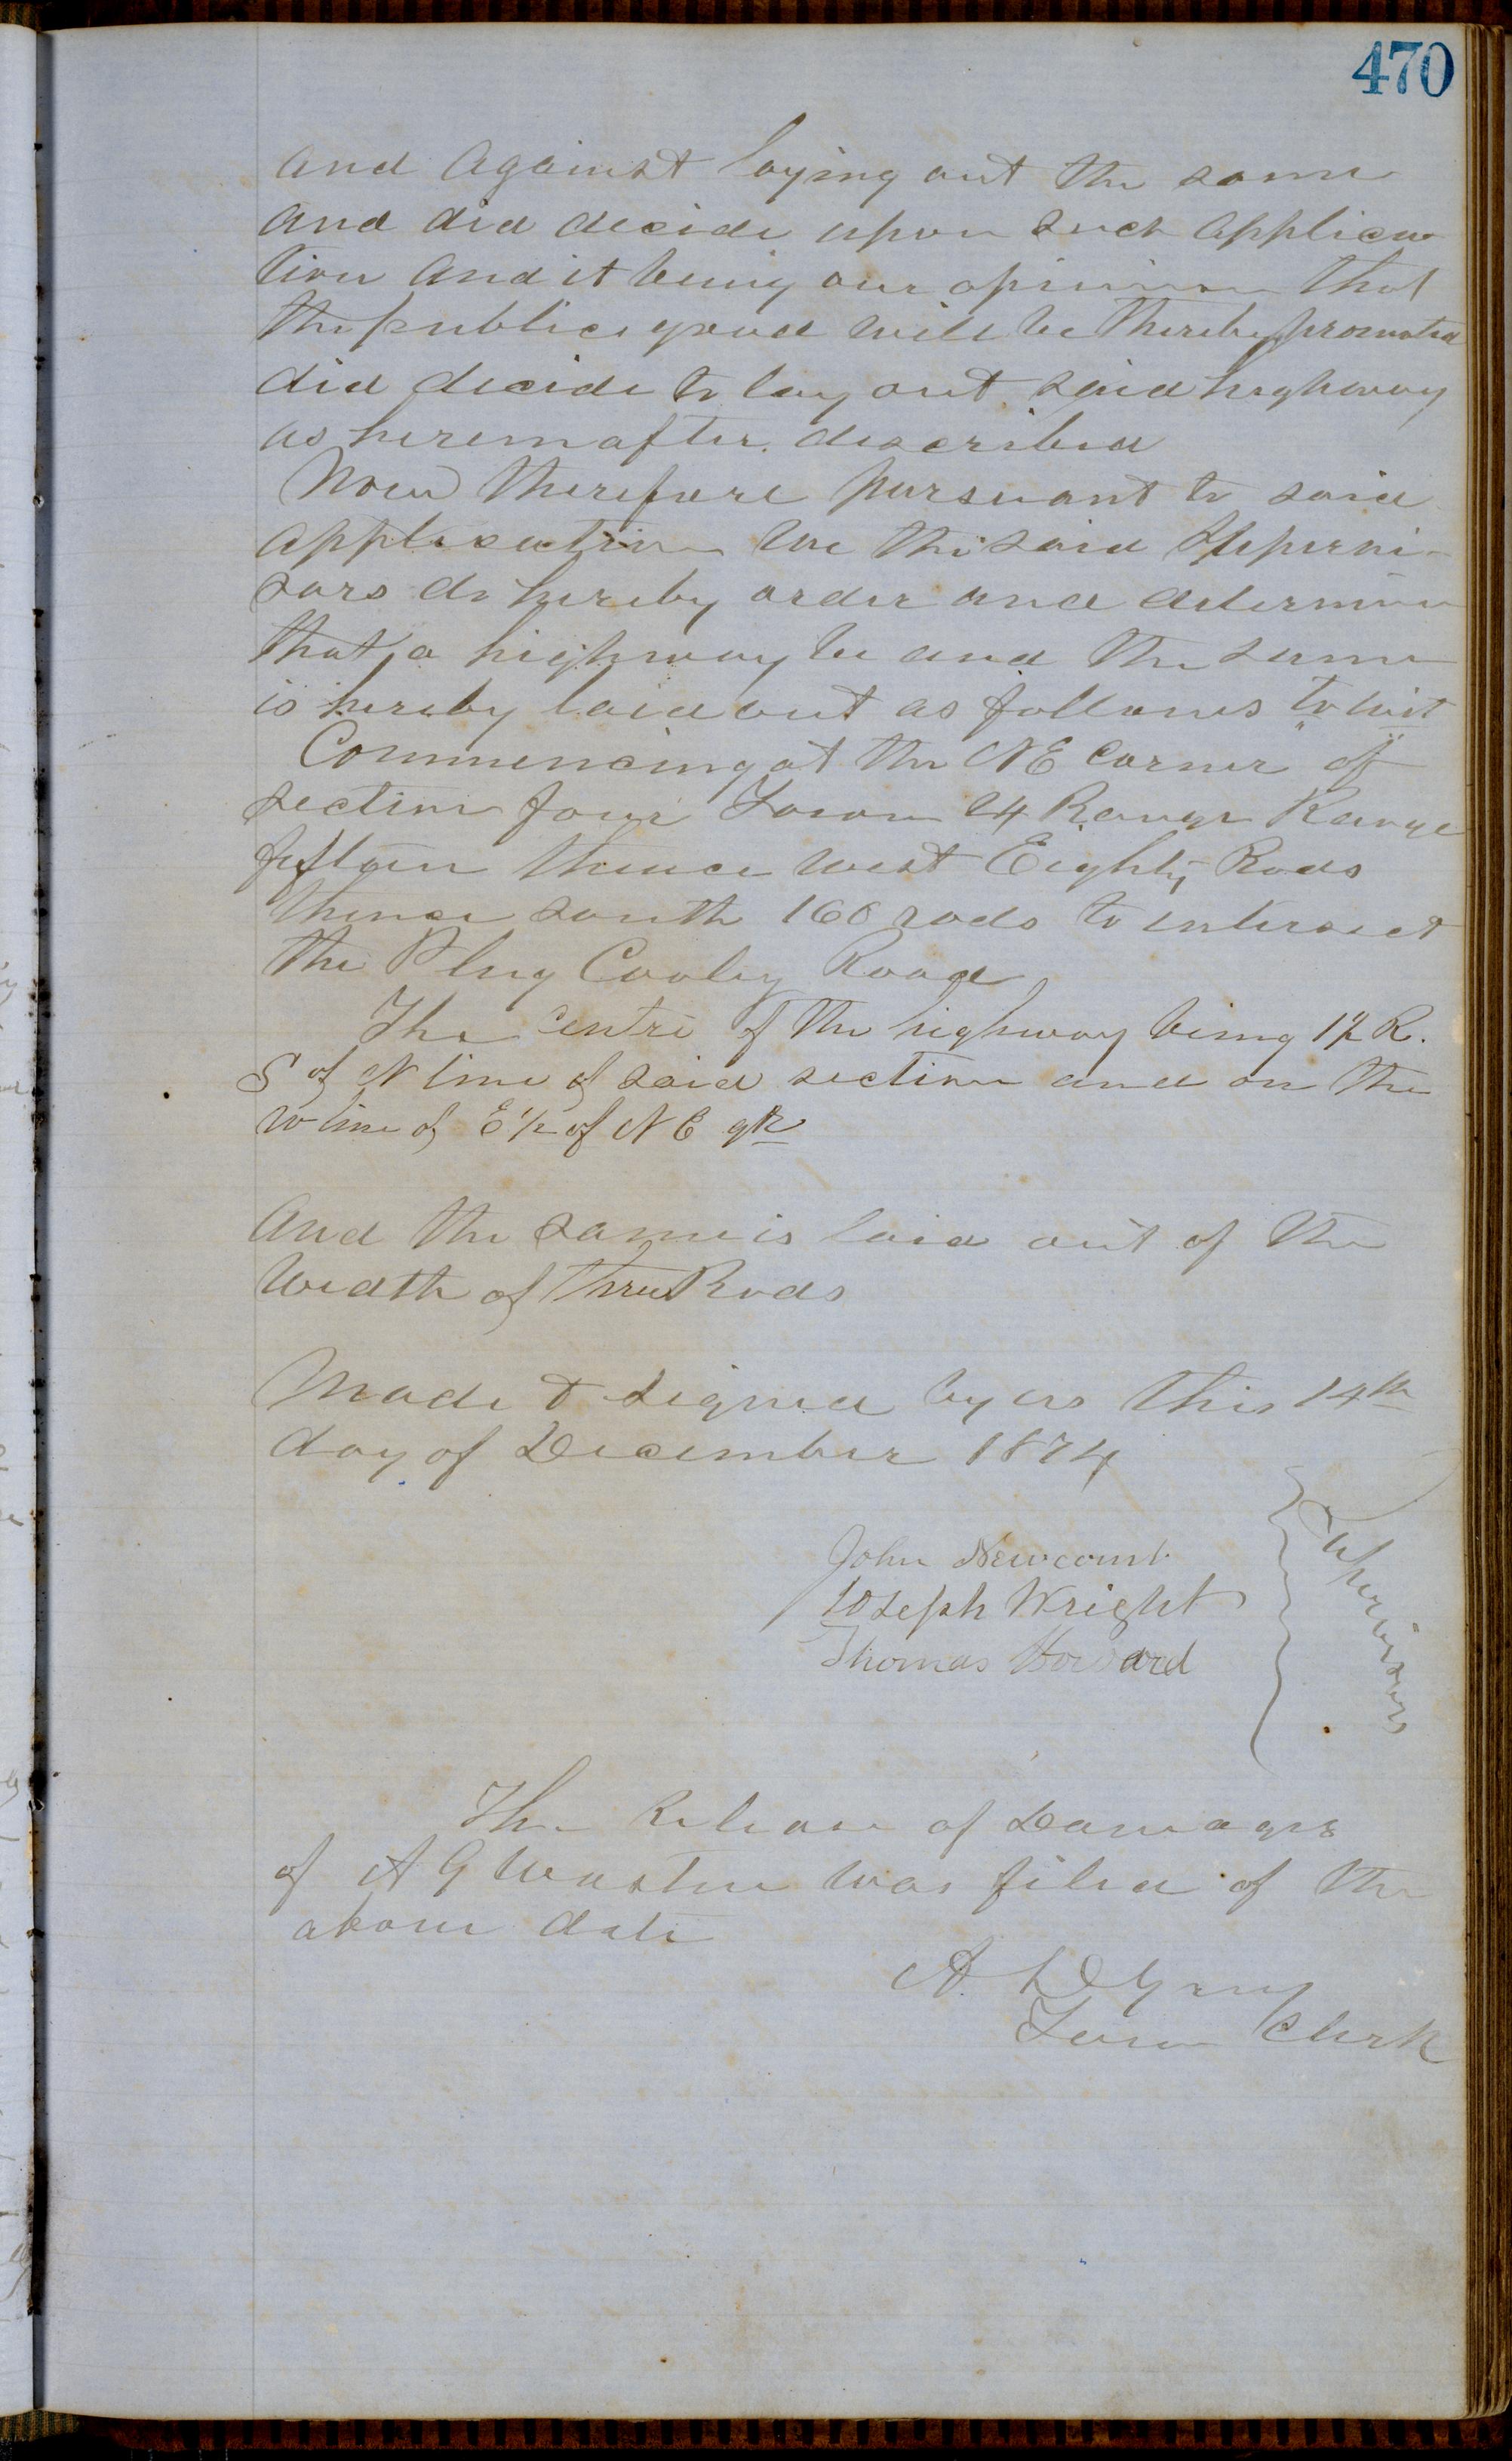 470
and against laying out the same
and did decide upon such applica
tion and it being our opinion that
the public good will be thereby promoted
did decide to lay out said highway
as hereinafter described
Now therefore pursuant to said
application We the said Supervi-
sors do hereby order and determine
that a highway be and the same
is hereby laid out as follows to wit
Commencing at the NE Corner of
section four Town 24 Range Range
fifteen thence west Eighty Rods
thence south 160 rods to intersect
the Plug Cooley Road
The Centre of the highway being 1½ R.
S of N line of said section and on the
W line of E ½ of N E qr
And the same is laid out of the
Width of Three Rods
Made & Signed by us this 14th
day of December 1874
John Newcomb
Joseph Wright
Thomas Howard
Supervisors
The Release of Damages
of A G was filed of the
above date
A
Town Clerk